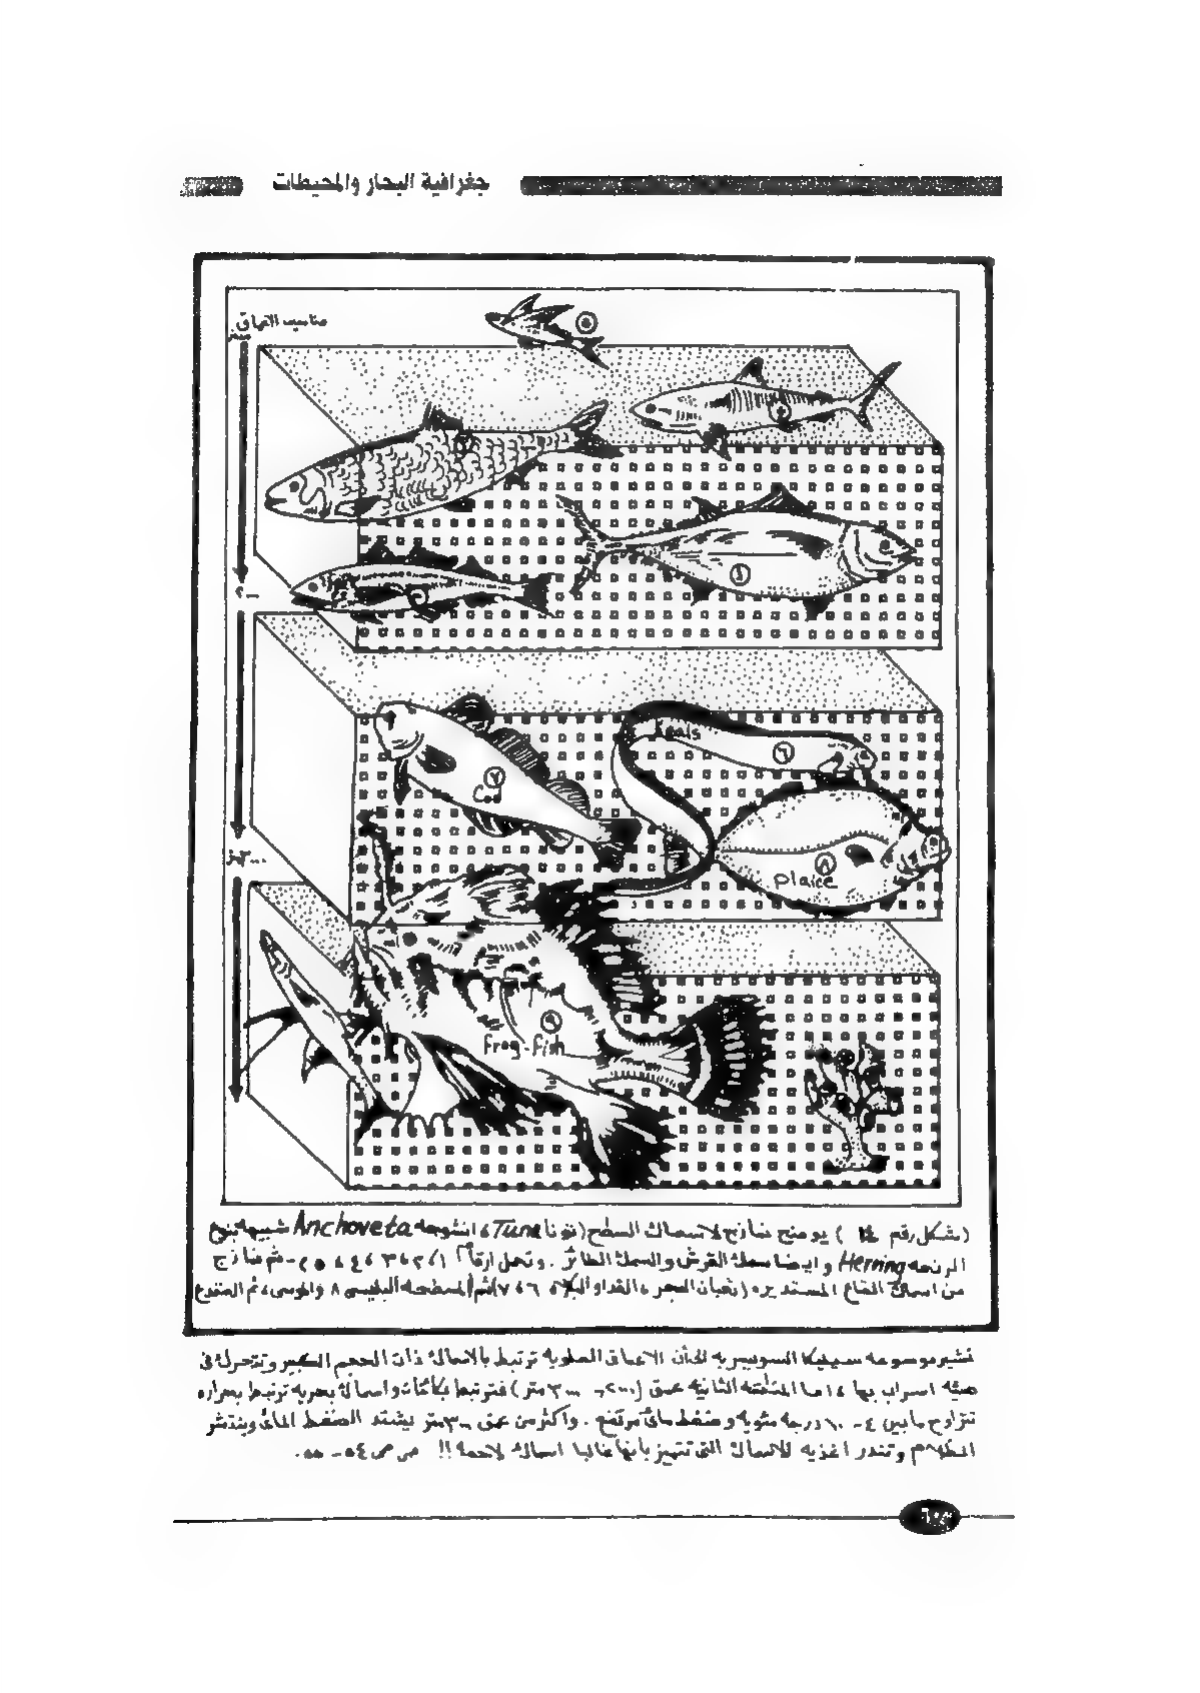 جغرافية البحار والمحيطات
مناسيب الاعماق
متر
٢٠٠
Eeals
٦
٧
Cod
٨
plaice
٩
frog-fish
(شكل رقم ) يوضح نماذج لاسماك السطح (تونا Tuna، انشوجه Anchoveta شبيهه بنوع
الرنجه Herring وايضا سمك القرش والسمك الطائر. وتحمل ارقام ١، ٢، ٣، ٤، ٥ - ثم نماذج
من اسماك القاع المستديره (ثعبان البحر، القد ٦، ٧) ثم المسطحه البليسى ٨ والموسى، ثم الضفدع
تشير موسوعه سيبيكا السويسريه الى أن الاعماق العلويه ترتبط بالاسماك ذات الحجم الكبير وتتحرك فى
هيئه اسراب بها، اما المنطقه الثانيه عمق (٢٠٠-٣٠٠٠ متر) فترتبط بكائنات واسماك بحريه ترتبط بحراره
تتراوح مابين ٤ - ١٠ درجه مئويه وضغط مائى مرتفع. واكثر من عمق ٣٠٠٠ متر يشتد الضغط المائى وينتشر
الظلام وتندر اغذيه للاسماك التى تتميز بأنها غالبا اسماك لاحمة!! ص ص ٥٤ - ٥٥.